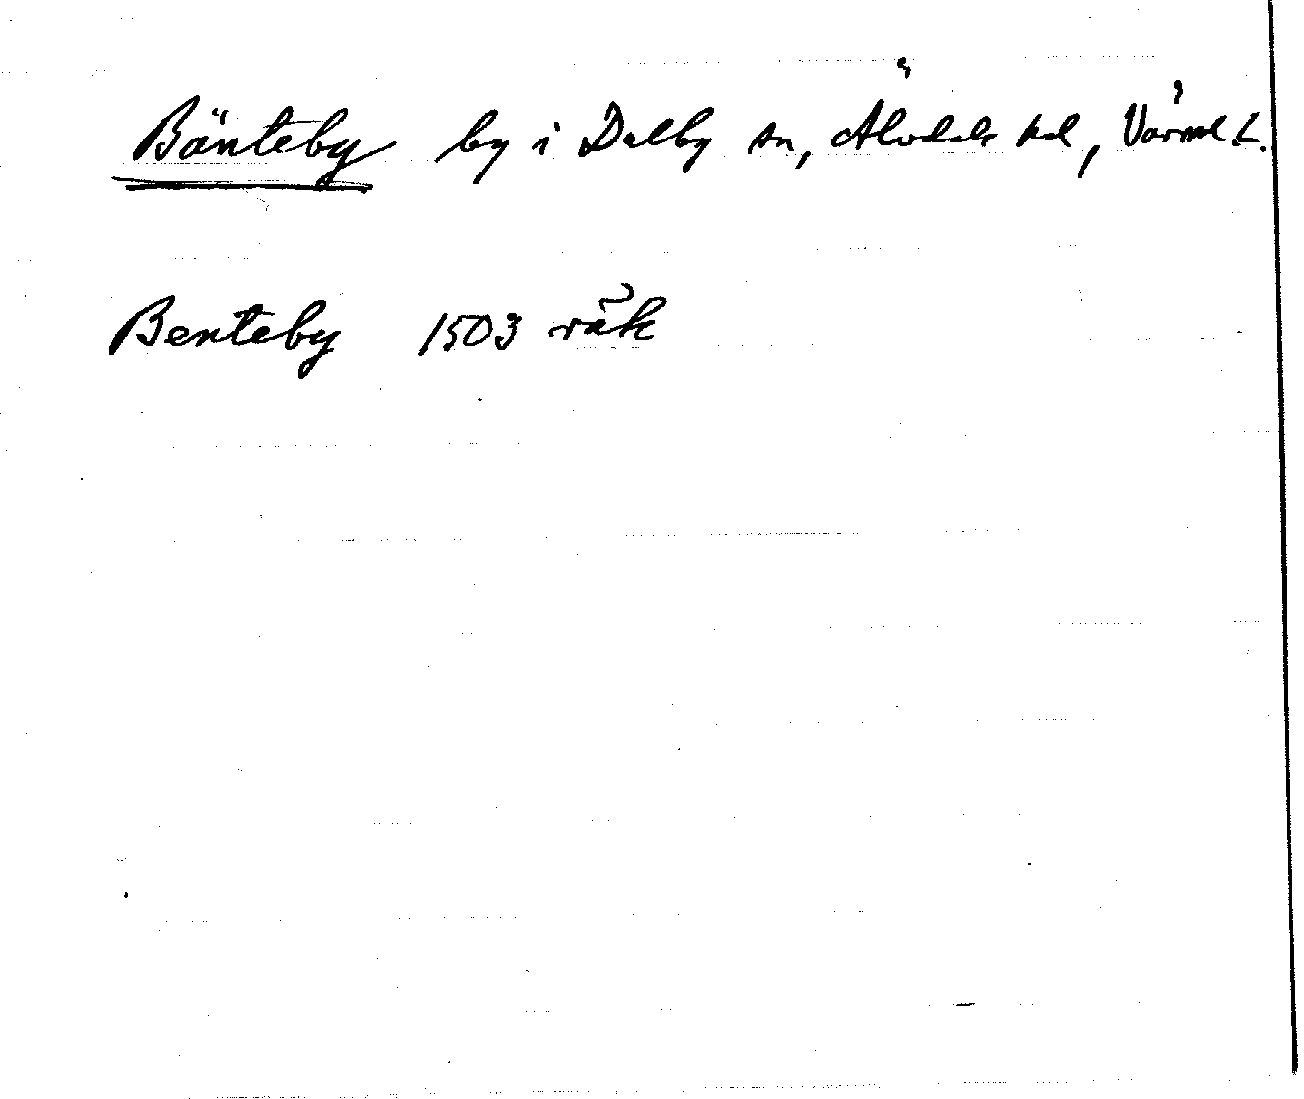 Bänteby by i Dalby sn, Älvdals hd, Värml L.
Benteby 1503 räk